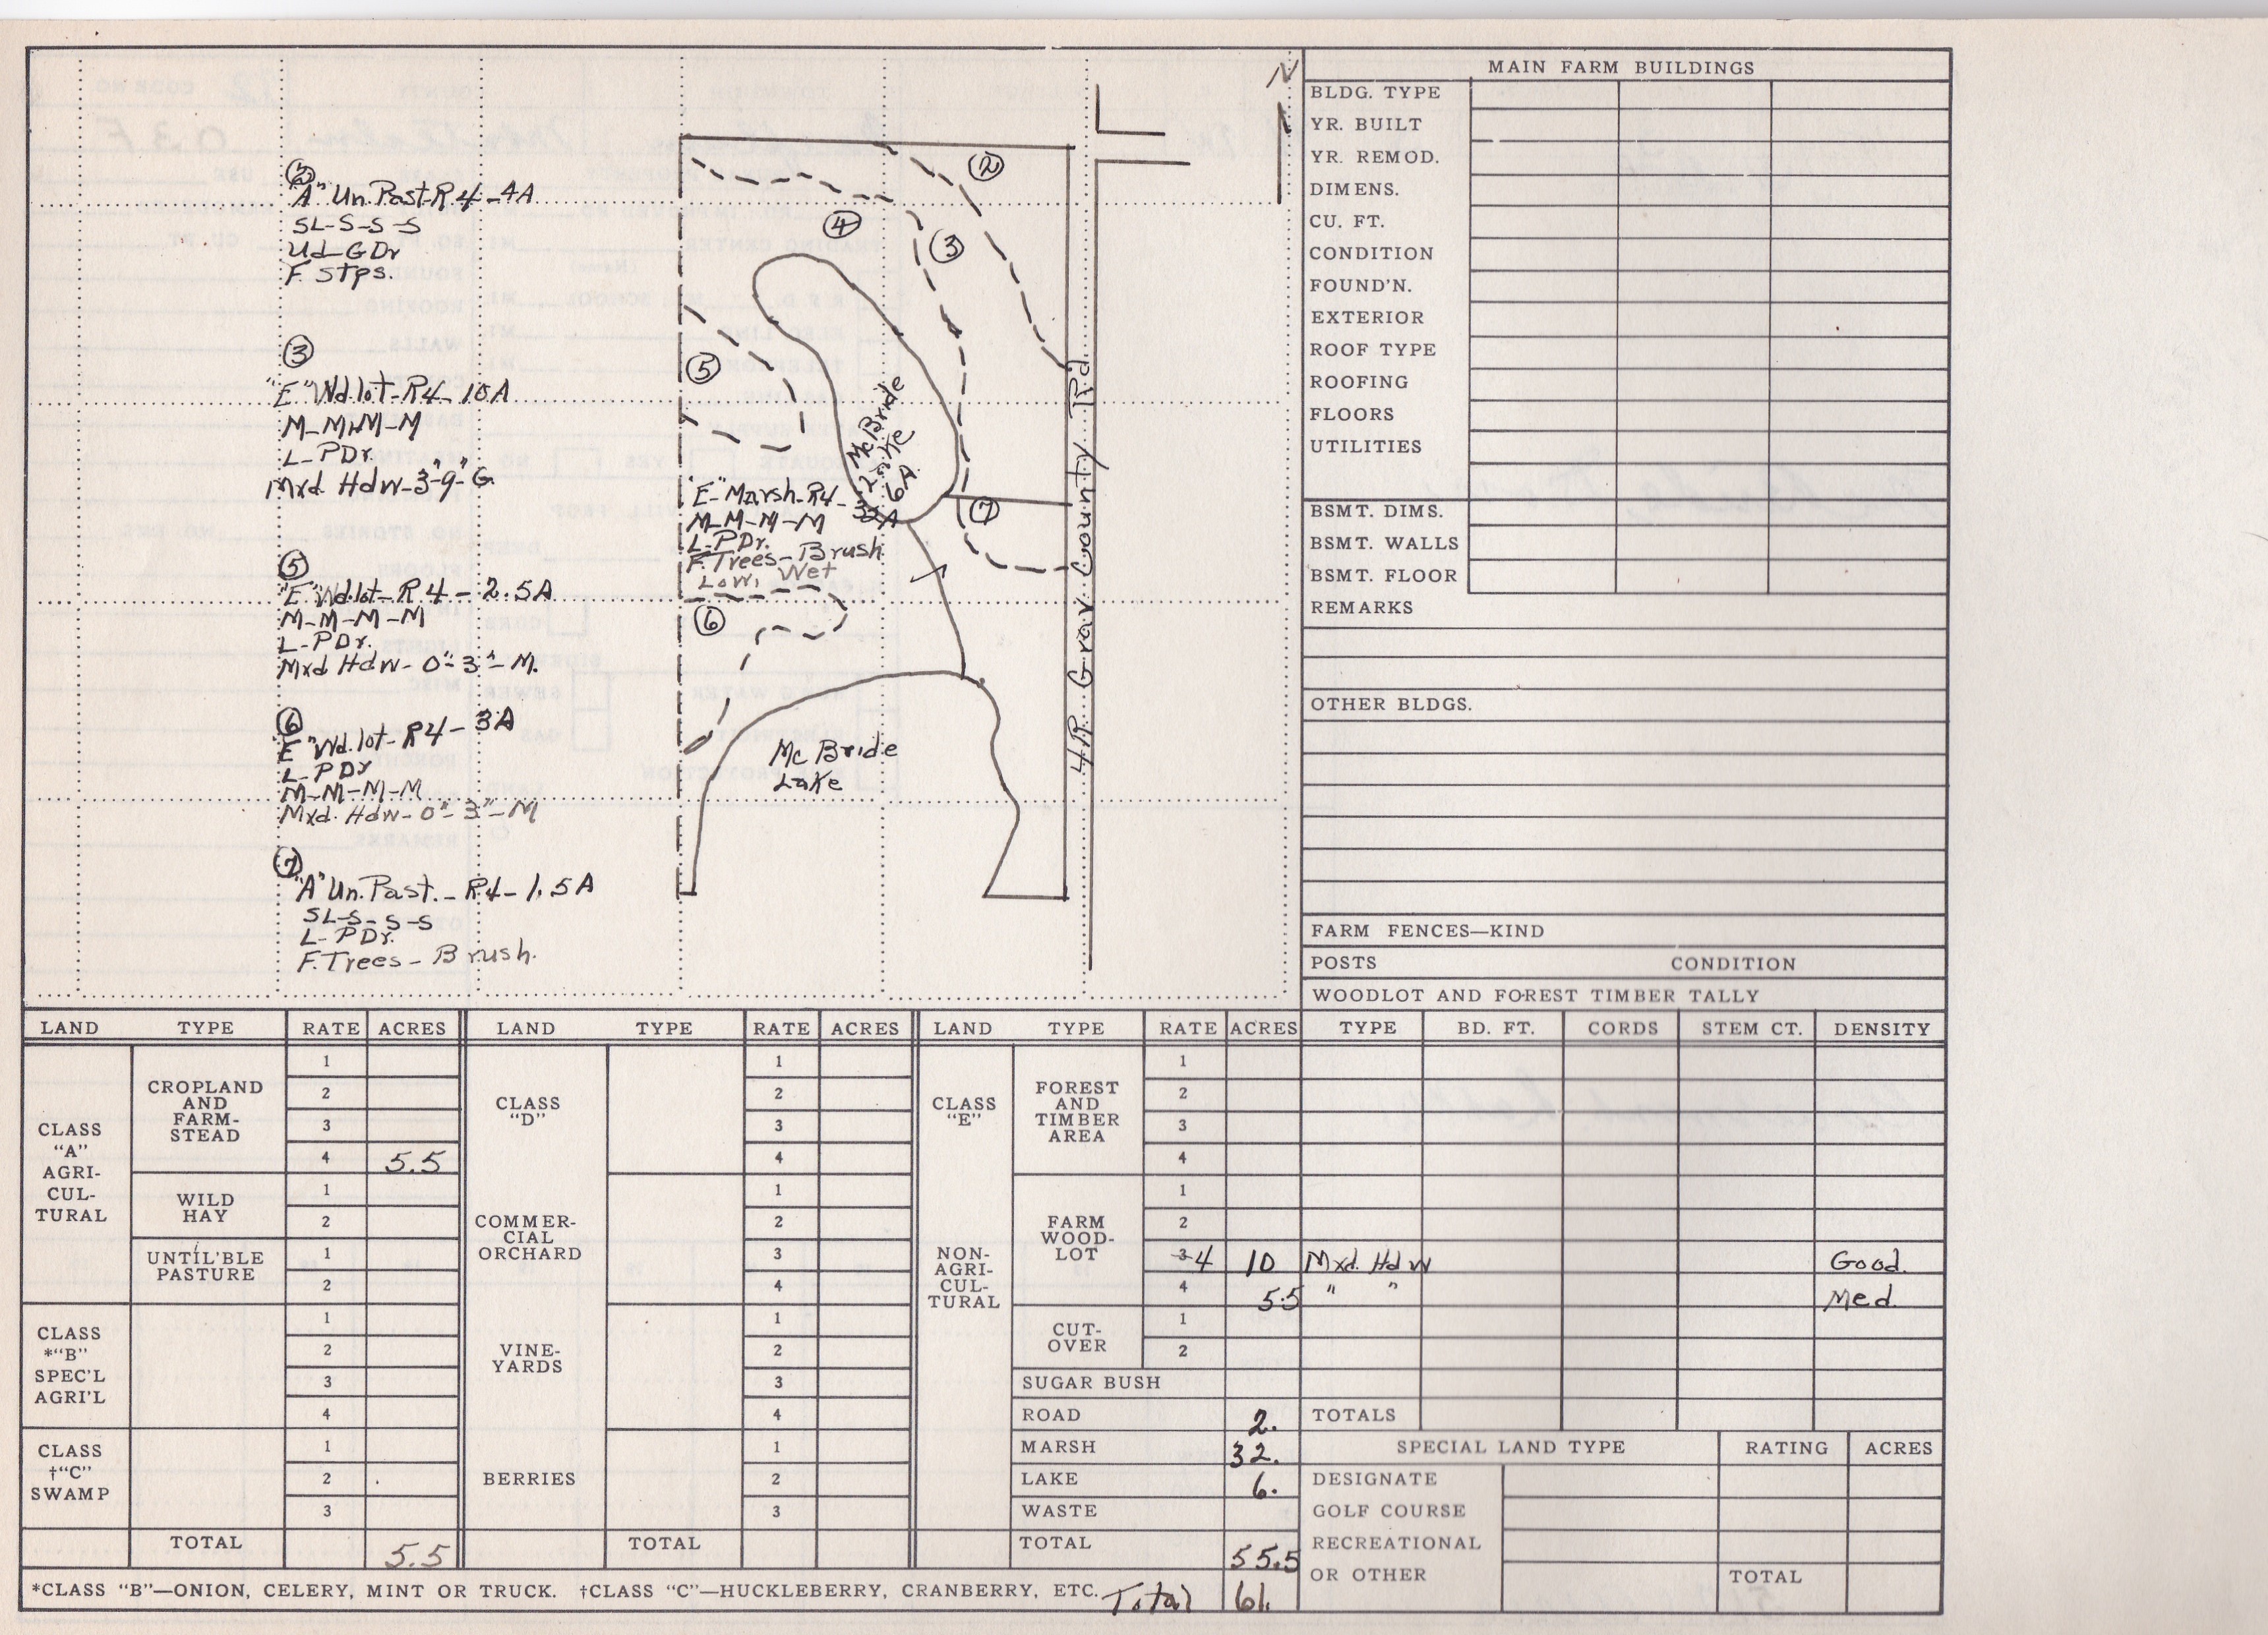 N
②
"A" Un. Past-R4-4A
SL-S-S-S
Ud-GDr
F. Stps.
③
"E" Wd.lot-R4-10A
M-M-M-M
L-PDr.
Mxd Hdw-3"-9"-G
⑤
"E" Wd.lot-R4-2.5A
M-M-M-M
L-PDr.
Mxd Hdw-0"-3"-M.
⑥
"E" Wd.lot-R4-3A
L-PDr
M-M-M-M
Mxd. Hdw-0"-3"-M
⑦
"A" Un. Past.-R4-1.5A
SL-S-S-S
L-PDr.
F. Trees-Brush.
②
④
③
⑤
McBride
Lake
6A
"E" Marsh-R4-32A
M-M-M-M
L-PDr.
F. Trees-Brush
Low, Wet
⑦
⑥
Mc Bride
Lake
4R Grav County Rd.
MAIN FARM BUILDINGS
BLDG. TYPE
YR. BUILT
YR. REMOD.
DIMENS.
CU. FT.
CONDITION
FOUND'N.
EXTERIOR
ROOF TYPE
ROOFING
FLOORS
UTILITIES
BSMT. DIMS.
BSMT. WALLS
BSMT. FLOOR
REMARKS
OTHER BLDGS.
FARM FENCES—KIND
POSTS CONDITION
WOODLOT AND FOREST TIMBER TALLY
LAND TYPE RATE ACRES LAND TYPE RATE ACRES LAND TYPE RATE ACRES TYPE BD. FT. CORDS STEM CT. DENSITY
CLASS
"A"
AGRI-
CUL-
TURAL
CROPLAND
AND
FARM-
STEAD
1
2
3
4 5.5
WILD
HAY
1
2
UNTIL'BLE
PASTURE
1
2
CLASS
*"B"
SPEC'L
AGRI'L
1
2
3
4
CLASS
†"C"
SWAMP
1
2
3
TOTAL 5.5
CLASS
"D"
1
2
3
4
COMMER-
CIAL
ORCHARD
1
2
3
4
VINE-
YARDS
1
2
3
4
BERRIES
1
2
3
TOTAL
CLASS
"E"
NON-
AGRI-
CUL-
TURAL
FOREST
AND
TIMBER
AREA
1
2
3
4
FARM
WOOD-
LOT
1
2
3 4 10 Mxd. Hdw Good.
4 5.5 " " Med.
CUT-
OVER
1
2
SUGAR BUSH
ROAD 2.
MARSH 32.
LAKE 6.
WASTE
TOTAL 55.5
TOTALS
SPECIAL LAND TYPE RATING ACRES
DESIGNATE
GOLF COURSE
RECREATIONAL
OR OTHER
TOTAL
*CLASS "B"—ONION, CELERY, MINT OR TRUCK. †CLASS "C"—HUCKLEBERRY, CRANBERRY, ETC. Total 61.